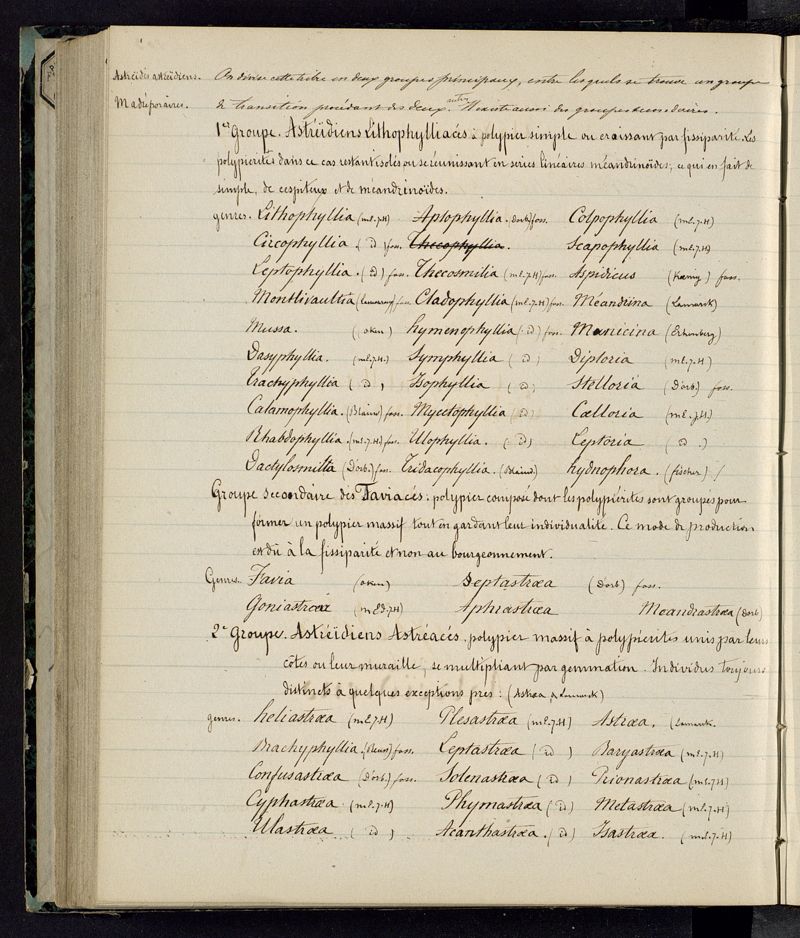 Astréides astréïdiens. On divise cette tribu en deux groupes principaux, entre lesquels se trouve un groupe
Madréporaires. de transition procédant des deux autres. Il existe aussi des groupes secondaires.
1er Groupe. Astréïdiens Lithophylliacés à polypier simple ou croissant par fissiparité. Les
polypiérites dans ce cas restant isolés ou se réunissant en séries linéaires méandrinoïdes, ce qui en fait de
simple, de cespiteux et de méandrinoïdes.
genres. Lithophyllia (m.E.J.H) Aplophyllia (Dorb) foss. Colpophyllia (m.E.J.H)
Circophyllia ( id ) foss. Thecophyllia. Scapophyllia (m.E.J.H)
Leptophyllia ( id ) foss. Thecosmilia (m.E.J.H) foss. Aspidicus (Kœnig) foss.
Montlivaultia (Lamouroux) foss. Cladophyllia (m.E.J.H) foss. Méandrina (Lamarck)
Mussa. (oken) hymenophyllia ( id ) foss. Manicina (Erhenberg)
Dasyphyllia. (m.E.J.H.) Symphyllia ( id ) Diploria (m.E.J.H)
Trachyphyllia ( id ) Isophyllia ( id ) Stelloria (D'orb) foss.
Calamophyllia. (Blainv) foss. Mycetophyllia ( id ) Cœlloria (m.E.J.H.)
Rhabdophyllia. (m.E.J.H) foss. Ulophyllia. ( id ) Leptoria ( id .)
Dactylosmilia (D'orb.) foss. Tridacophyllia. (Blainv) hydnophora. (fischer) /
Groupe secondaire des Faviacés: polypier composé dont les polypiérites sont groupés pour
former un polypier massif tout en gardant leur individualité. Ce mode de production
est dû à la fissiparité et non au bourgeonnement.
Genres. Favia (oken) Septastræa (D'orb) foss.
Goniastræa (m.ED.J.H) Aphrastræa Meandrastræa (Dorb)
2e Groupe. Astréïdiens Astréacés. polypier massif à polypiérites unis par leurs
côtes ou leur muraille, se multipliant par gemmation. Individus toujours
distincts à quelques exceptions près: (Astræa de Lamarck)
genres. heliastræa (m.E.J.H) Plesastræa (m.E.J.H) Astræa. (Lamarck.
Brachyphyllia. (Reuss) foss. Leptastræa ( id ) Baryastræa (m.E.J.H)
Confusastræa (D'orb.) foss. Solenastræa ( id ) Prionastræa (m.E.J.H)
Cyphastræa (m.E.J.H) Phymastræa ( id ) Metastræa (m.E.J.H)
Ulastræa ( id ) Acanthastræa. ( id ) Isastræa. (m.E.J.H)